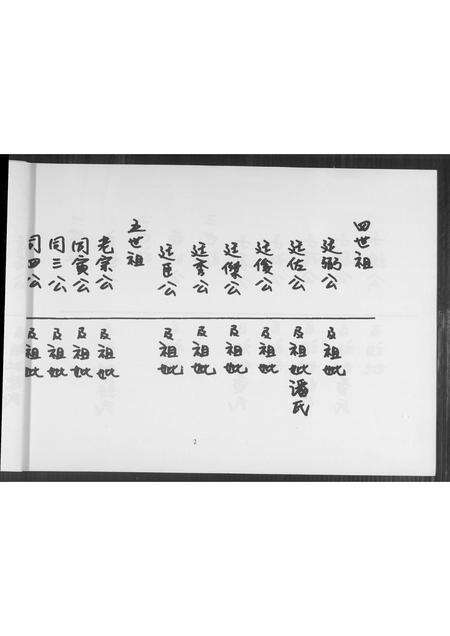 四世祖
廷弼公 及祖妣
廷佐公 及祖妣潘氏
廷俊公 及祖妣
廷傑公 及祖妣
廷秀公 及祖妣
廷臣公 及祖妣
五世祖
老宗公 及祖妣
同寅公 及祖妣
同三公 及祖妣
同四公 及祖妣
2